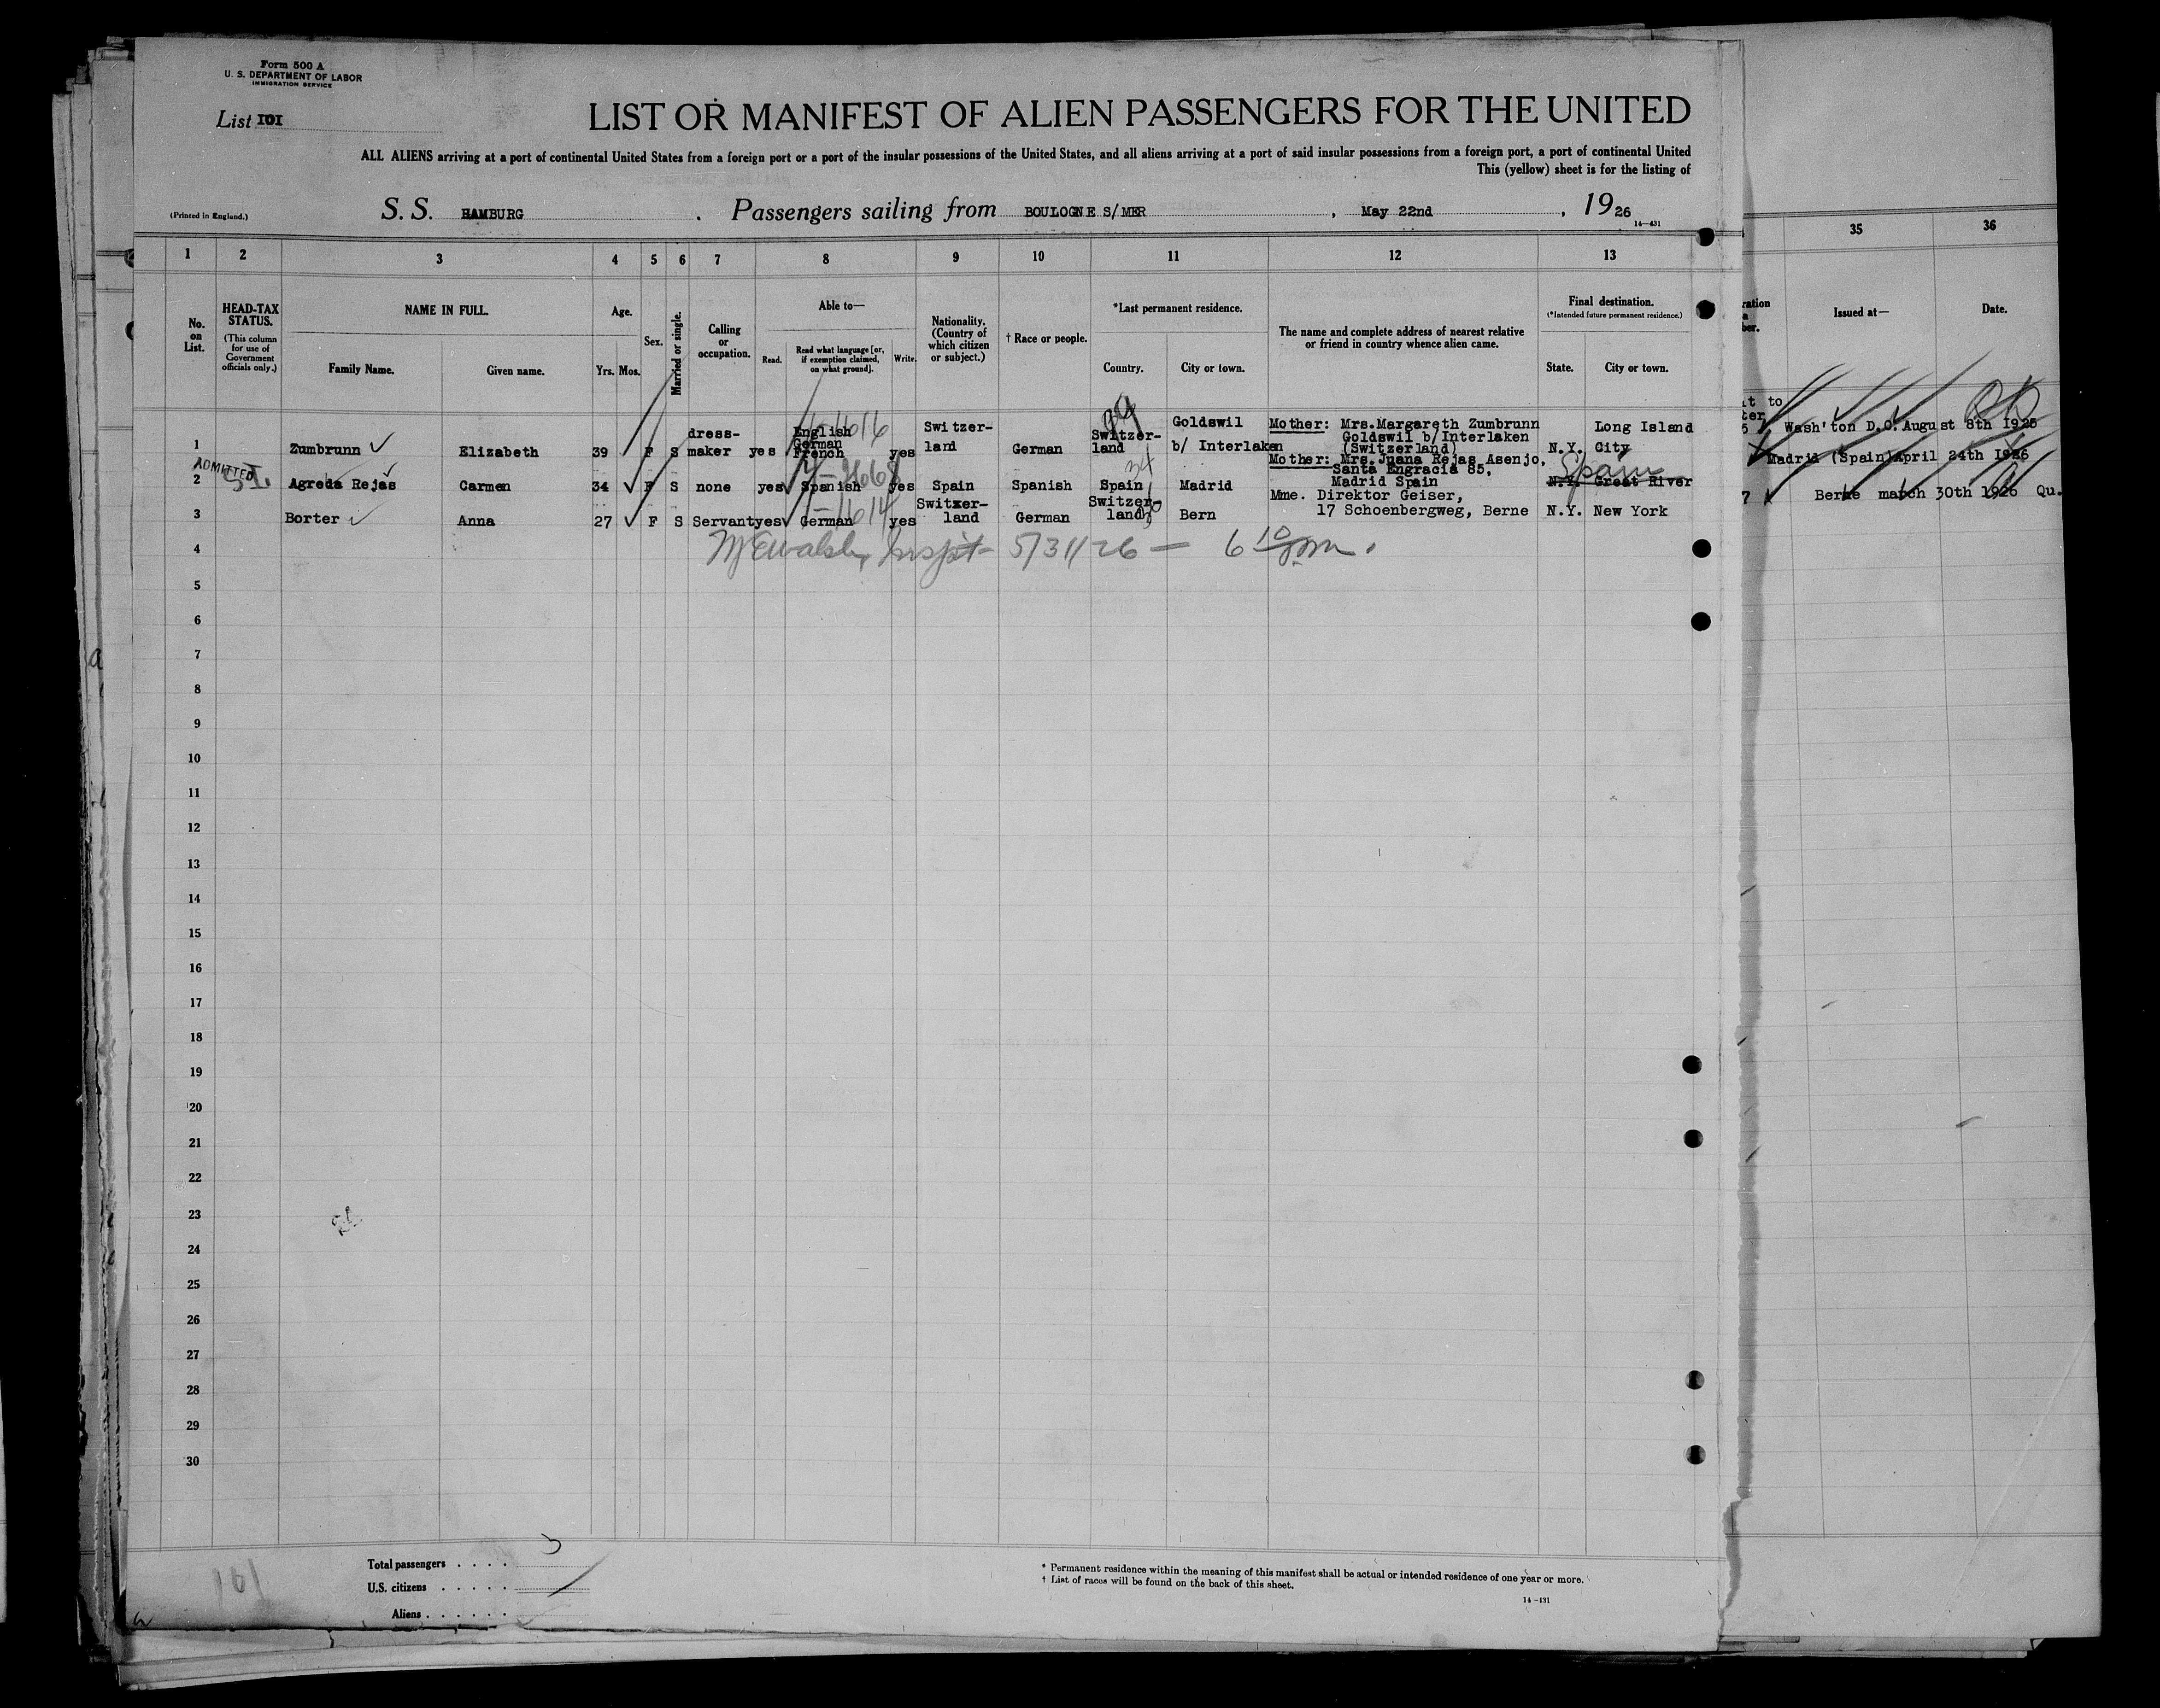 Form 500 A
U. S. DEPARTMENT OF LABOR
IMMIGRATION SERVICE
List 101
LIST OR MANIFEST OF ALIEN PASSENGERS FOR THE UNITED
ALL ALIENS arriving at a port of continental United States from a foreign port or a port of the insular possessions of the United States, and all aliens arriving at a port of said insular possessions from a foreign port, a port of continental United
This (yellow) sheet is for the listing of
(Printed in England.) S. S. HAMBURG . Passengers sailing from BOULOGNE S/MER , May 22nd , 1926
14—431
1 2 3 4 5 6 7 8 9 10 11 12 13 35 36
No. on List.
HEAD-TAX STATUS.
(This column for use of Government officials only.)
NAME IN FULL.
Family Name. Given name.
Age.
Yrs. Mos.
Sex.
Married or single.
Calling or occupation.
Able to—
Read. Read what language [or, if exemption claimed, on what ground]. Write.
Nationality. (Country of which citizen or subject.)
† Race or people.
*Last permanent residence.
Country. City or town.
The name and complete address of nearest relative or friend in country whence alien came.
Final destination.
(*Intended future permanent residence.)
State. City or town.
Issued at—
Date.
1 Zumbrunn Elizabeth 39 F S dress-maker yes English German French yes Switzer-land German Switzer-land Goldswil b/ Interlaken Mother: Mrs.Margareth Zumbrunn Goldswil b/Interlaken (Switzerland) N.Y. Long Island City Wash'ton D.C. August 8th 1925
ADMITTED
2 Agreda Rejas Carmen 34 F S none yes Spanish yes Spain Spanish Spain Madrid Mother: Mrs.Juana Rejas Asenjo, Santa Engracia 85, Madrid Spain N.Y. Great River Spain Madrid (Spain) April 24th 1926
3 Borter Anna 27 F S Servant yes German yes Switxer-land German Switzer-land Bern Mme. Direktor Geiser, 17 Schoenbergweg, Berne N.Y. New York Berne march 30th 1926 Qu.
4 5/31/26 — 6 10 pm.
5
6
7
8
9
10
11
12
13
14
15
16
17
18
19
20
21
22
23
24
25
26
27
28
29
30
101
Total passengers . . . . 3
U.S. citizens . . . . .
Aliens . . . . . .
* Permanent residence within the meaning of this manifest shall be actual or intended residence of one year or more.
† List of races will be found on the back of this sheet.
14—431